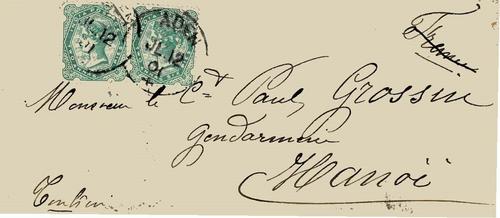 ADEN
JL 12
01
ADEN
JL 12
01
France
Monsieur le Ct Paul Grossin
Gendarmerie
Hanoï
Tonkin